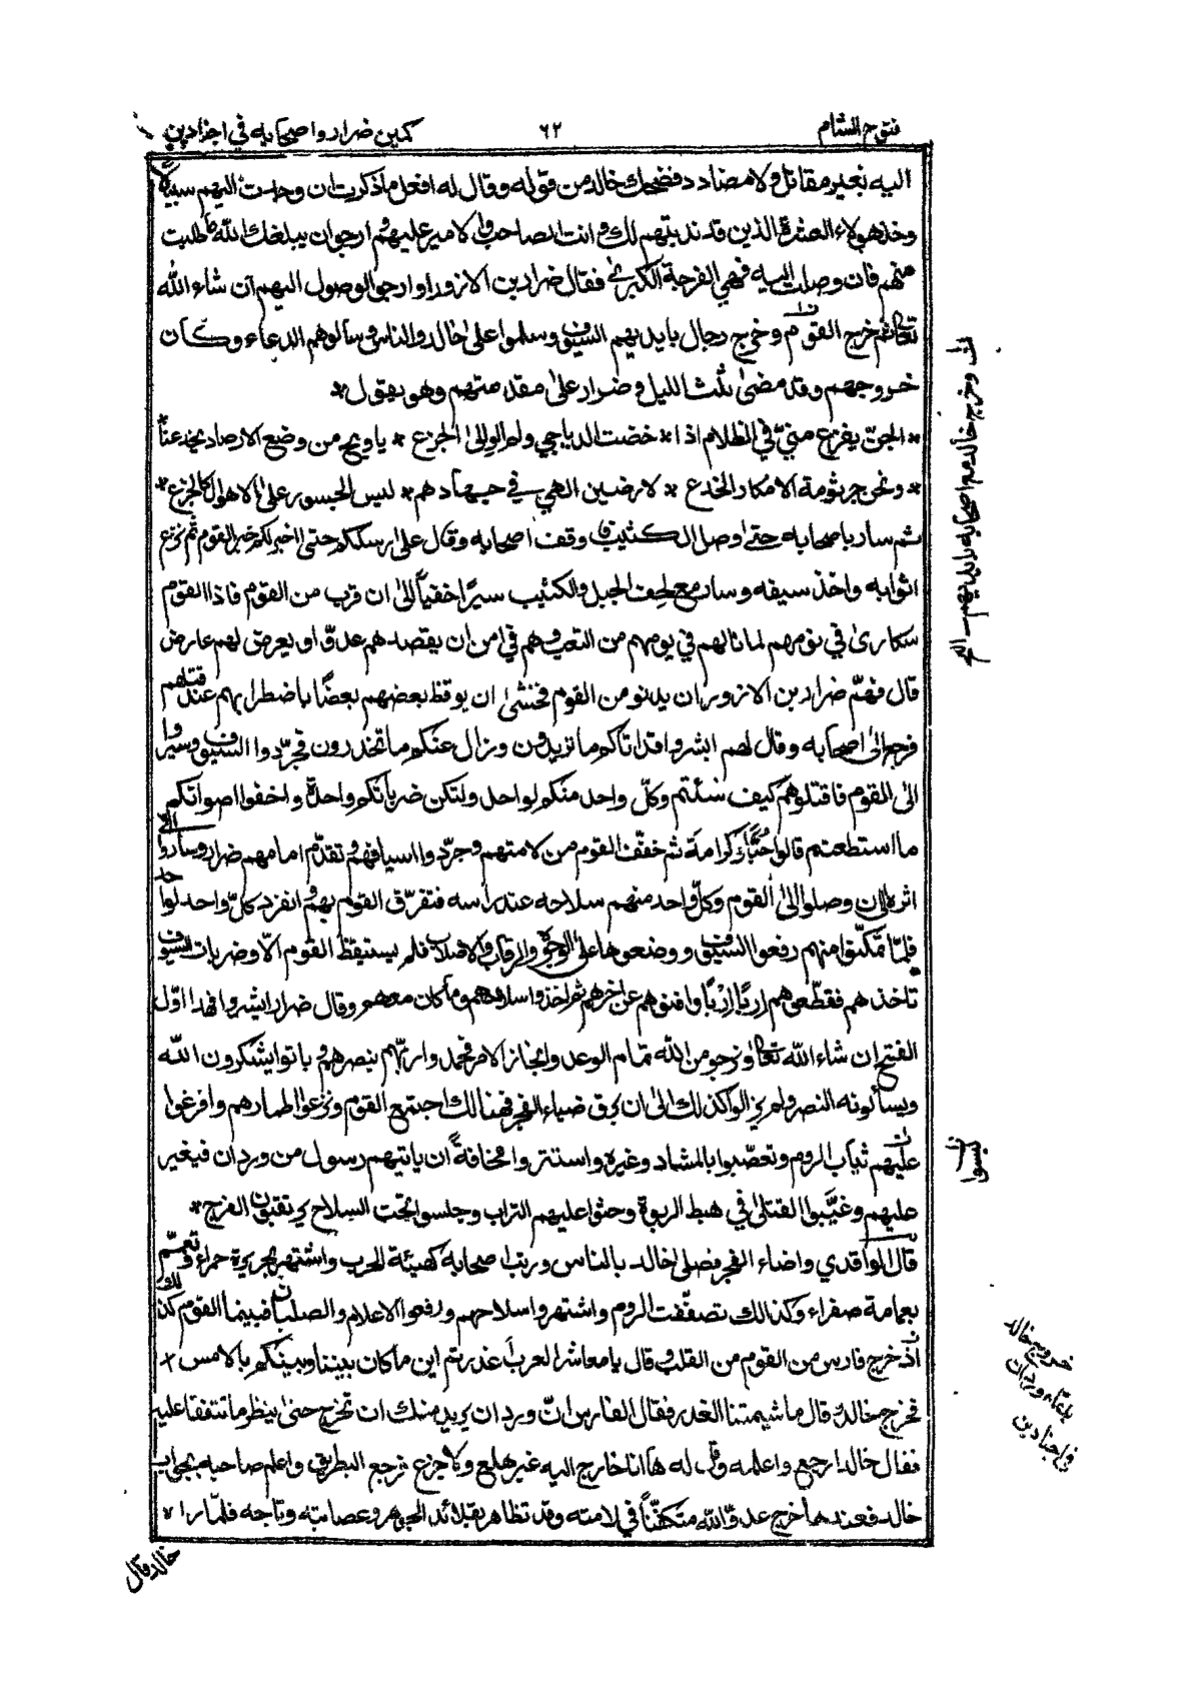 فتوح الشام
٦٢
كمين ضرار واصحابه في اجنادين
اليه بغير مقاتل ولا مضادد فضحك خالد من قوله وقال له افعل ما ذكرت ان وجدت اليهم سبيلا
وخذ هولاء العشرة الذين قد ندبتهم لك وانت الصاحب والامير عليهم وارجو ان يبلغك الله ما طلبت
منهم فان وصلت اليه فهي الفرحة الكبرىٰ فقال ضرار بن الازور او ارجو الوصول اليهم ان شاء الله
تعالىٰ ثم خرج القوم وخرج رجال بايديهم السيوف وسلموا علىٰ خالد والناس وسألوهم الدعاء وكان
خروجهم وقد مضىٰ ثلث الليل وضرار علىٰ مقدمتهم وهو يقول *
* الجن يفزع مني في الظلام اذا * خضت الدياجي ولم الوالىٰ الجزع * يا ويح من وضع الارصاد يخدعنا *
* ونحن جرثومة الامكار الخدع * لارضين الهي في جهادهم * ليس الجسور علىٰ الاهوال كالجزع *
ثم سار باصحابه حتى اوصل الى الكثيب وقف اصحابه وقال علىٰ رسلكم حتىٰ اخبركم خبر القوم ثم نزع
اثوابه واخذ سيفه وسار مع لحف الجبل والكثيب سيرًا خفيًا الىٰ ان قرب من القوم فاذا القوم
سكارىٰ في نومهم لما نالهم في يومهم من التعب وهم في امن ان يقصدهم عدوّ او يعرض لهم عارض
قال فهمّ ضرار بن الازور ان يدنو من القوم فخشىٰ ان يوقظ بعضهم بعضًا باضطرابهم عند قتلهم
فرجع الىٰ اصحابه وقال لهم ابشروا فقد اتاكم ما تريدون وزال عنكم ما تحذرون فجرّدوا السيوف وسيروا
الىٰ القوم فاقتلوهم كيف شئتم وكلّ واحد منكم لواحد ولتكن ضرباتكم واحدة واخفوا اصواتكم
ما استطعتم قالوا حُبًّا وكرامة ثم خفّف القوم من لامتهم وجرّدوا اسيافهم وتقدّم امامهم ضرار وساروا الىٰ
اثره الى ان وصلوا الىٰ القوم وكلّ واحد منهم سلاحه عند رأسه فتفرّق القوم بهم وانفرد كلّ واحد لواحد
فلمّا تمكّنوا منهم رفعوا السيوف ووضعوها علىٰ الوجوه والرقاب والاضلاب فلم يستيقظ القوم الّا وضربات السيوف
تاخذهم فقطّعوهم اربًا اربًا وافنوهم عن اخرهم ثم اخذوا سلاحهم وما كان معهم وقال ضرار ابشروا فهذا اوّل
الفتح ان شاء الله تعالىٰ ونرجو من الله تمام الوعد وانجاز الامر فحمدوا ربّهم بنصرهم وباتوا يشكرون الله
ويسألونه النصر ولم يزالوا كذلك الىٰ ان برق ضياء الفجر فهنالك اجتمع القوم ونزعوا اطمارهم وافرغوا
عليهم ثياب الروم وتعصّبوا بالمشاد وغيره واستتروا مخافةً ان ياتيهم رسول من وردان فيغير
عليهم وغيّبوا القتلىٰ في هبط الربوة وحثوا عليهم التراب وجلسوا تحت السلاح يرتقبون الفرج *
قال الواقدي واضاء الفجر فصلىٰ خالد بالناس ورتب اصحابه كهيئة الحرب واشتهر بحريرة حمراء وتعمّم
بعمامة صفراء وكذالك تصفّفت الروم واشتهروا سلاحهم ورفعوا الاعلام والصلبان فبينما القوم كذلك
اذ خرج فارس من القوم من القلب وقال يا معاشر العرب غدرتم اين ما كان بيننا وبينكم بالامس
فخرج خالد وقال ما شيمتنا الغدر فقال الفارس انّ وردان يريد منك ان تخرج حتىٰ ينظر ما تتفقا عليه
فقال خالد ارجع واعلمه وقل له ها انا خارج اليه غير هلع ولا جزع فرجع البطريق واعلم صاحبه بجواب
خالد فعندها خرج عدوّ الله متكفّنًا في لامته وقد تظاهر بقلائد الجوهر وعصابته وتاجه فلمّا راه
خالد قال
وخرج خالد مع اصحابه بايديهم
خروج خالد
بلقاء وردان
في اجنادين